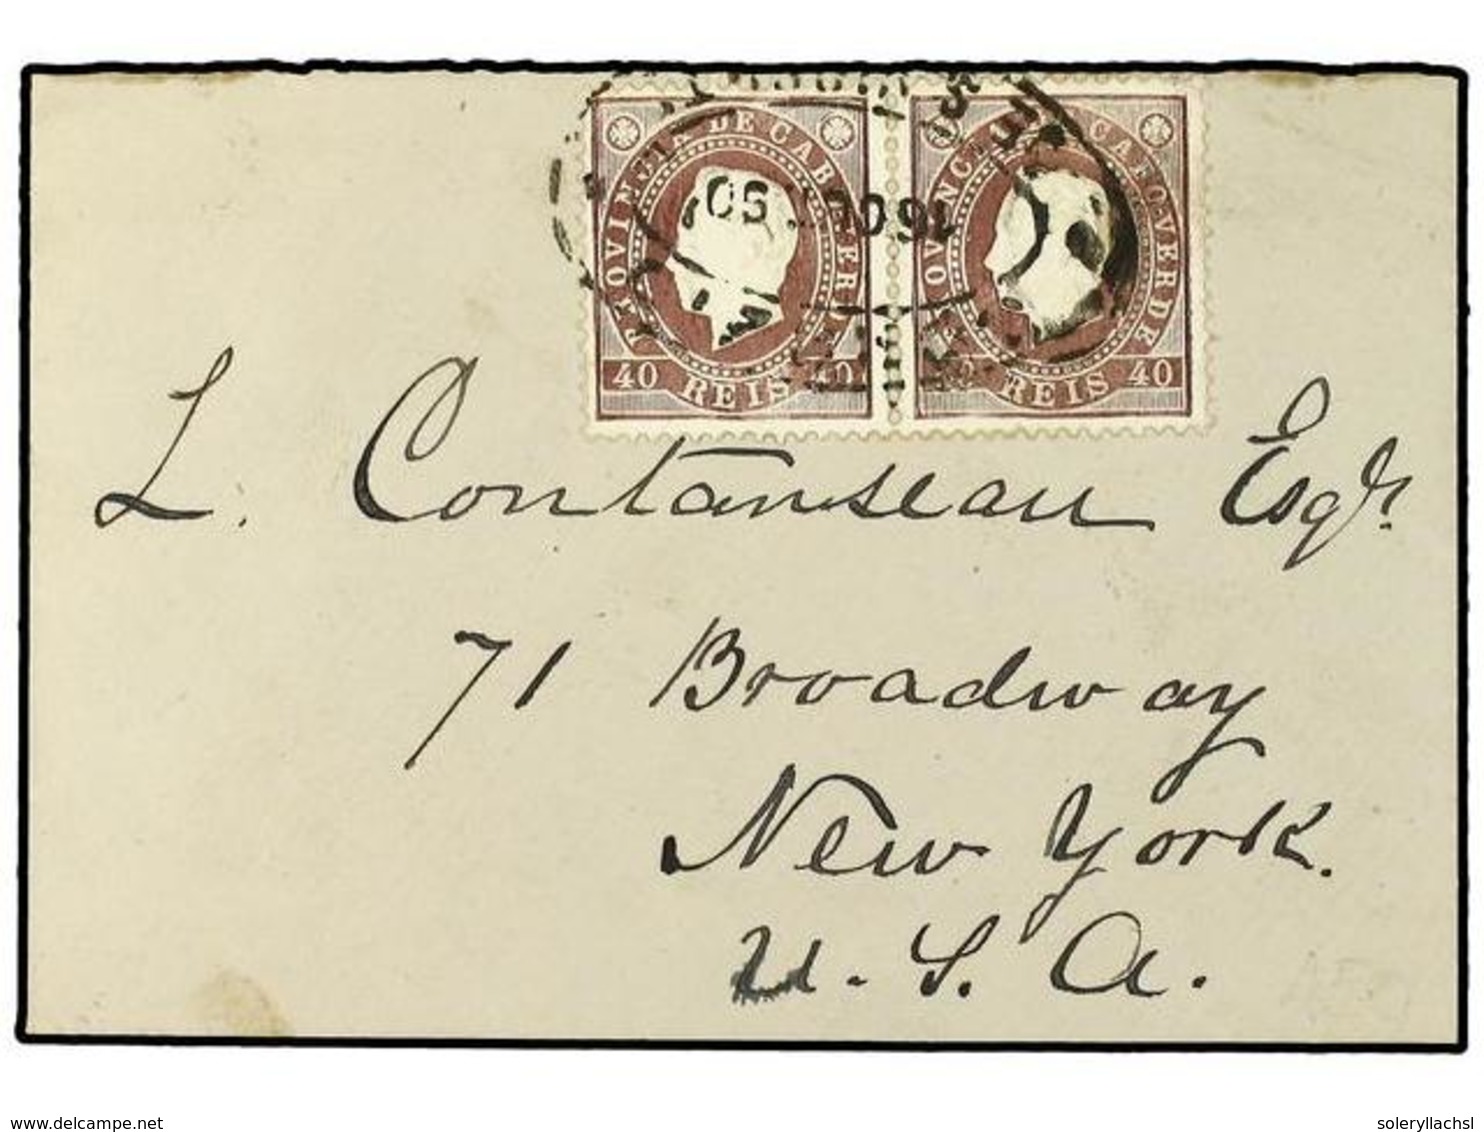 PROVINCIA DE CABO VERDE
40 REIS 40
PROVINCIA DE CABO-VERDE
40 REIS 40
L. Contanseau Esqr.
71 Broadway
New York.
U. S. A.
www.delcampe.net
soleryllachsl